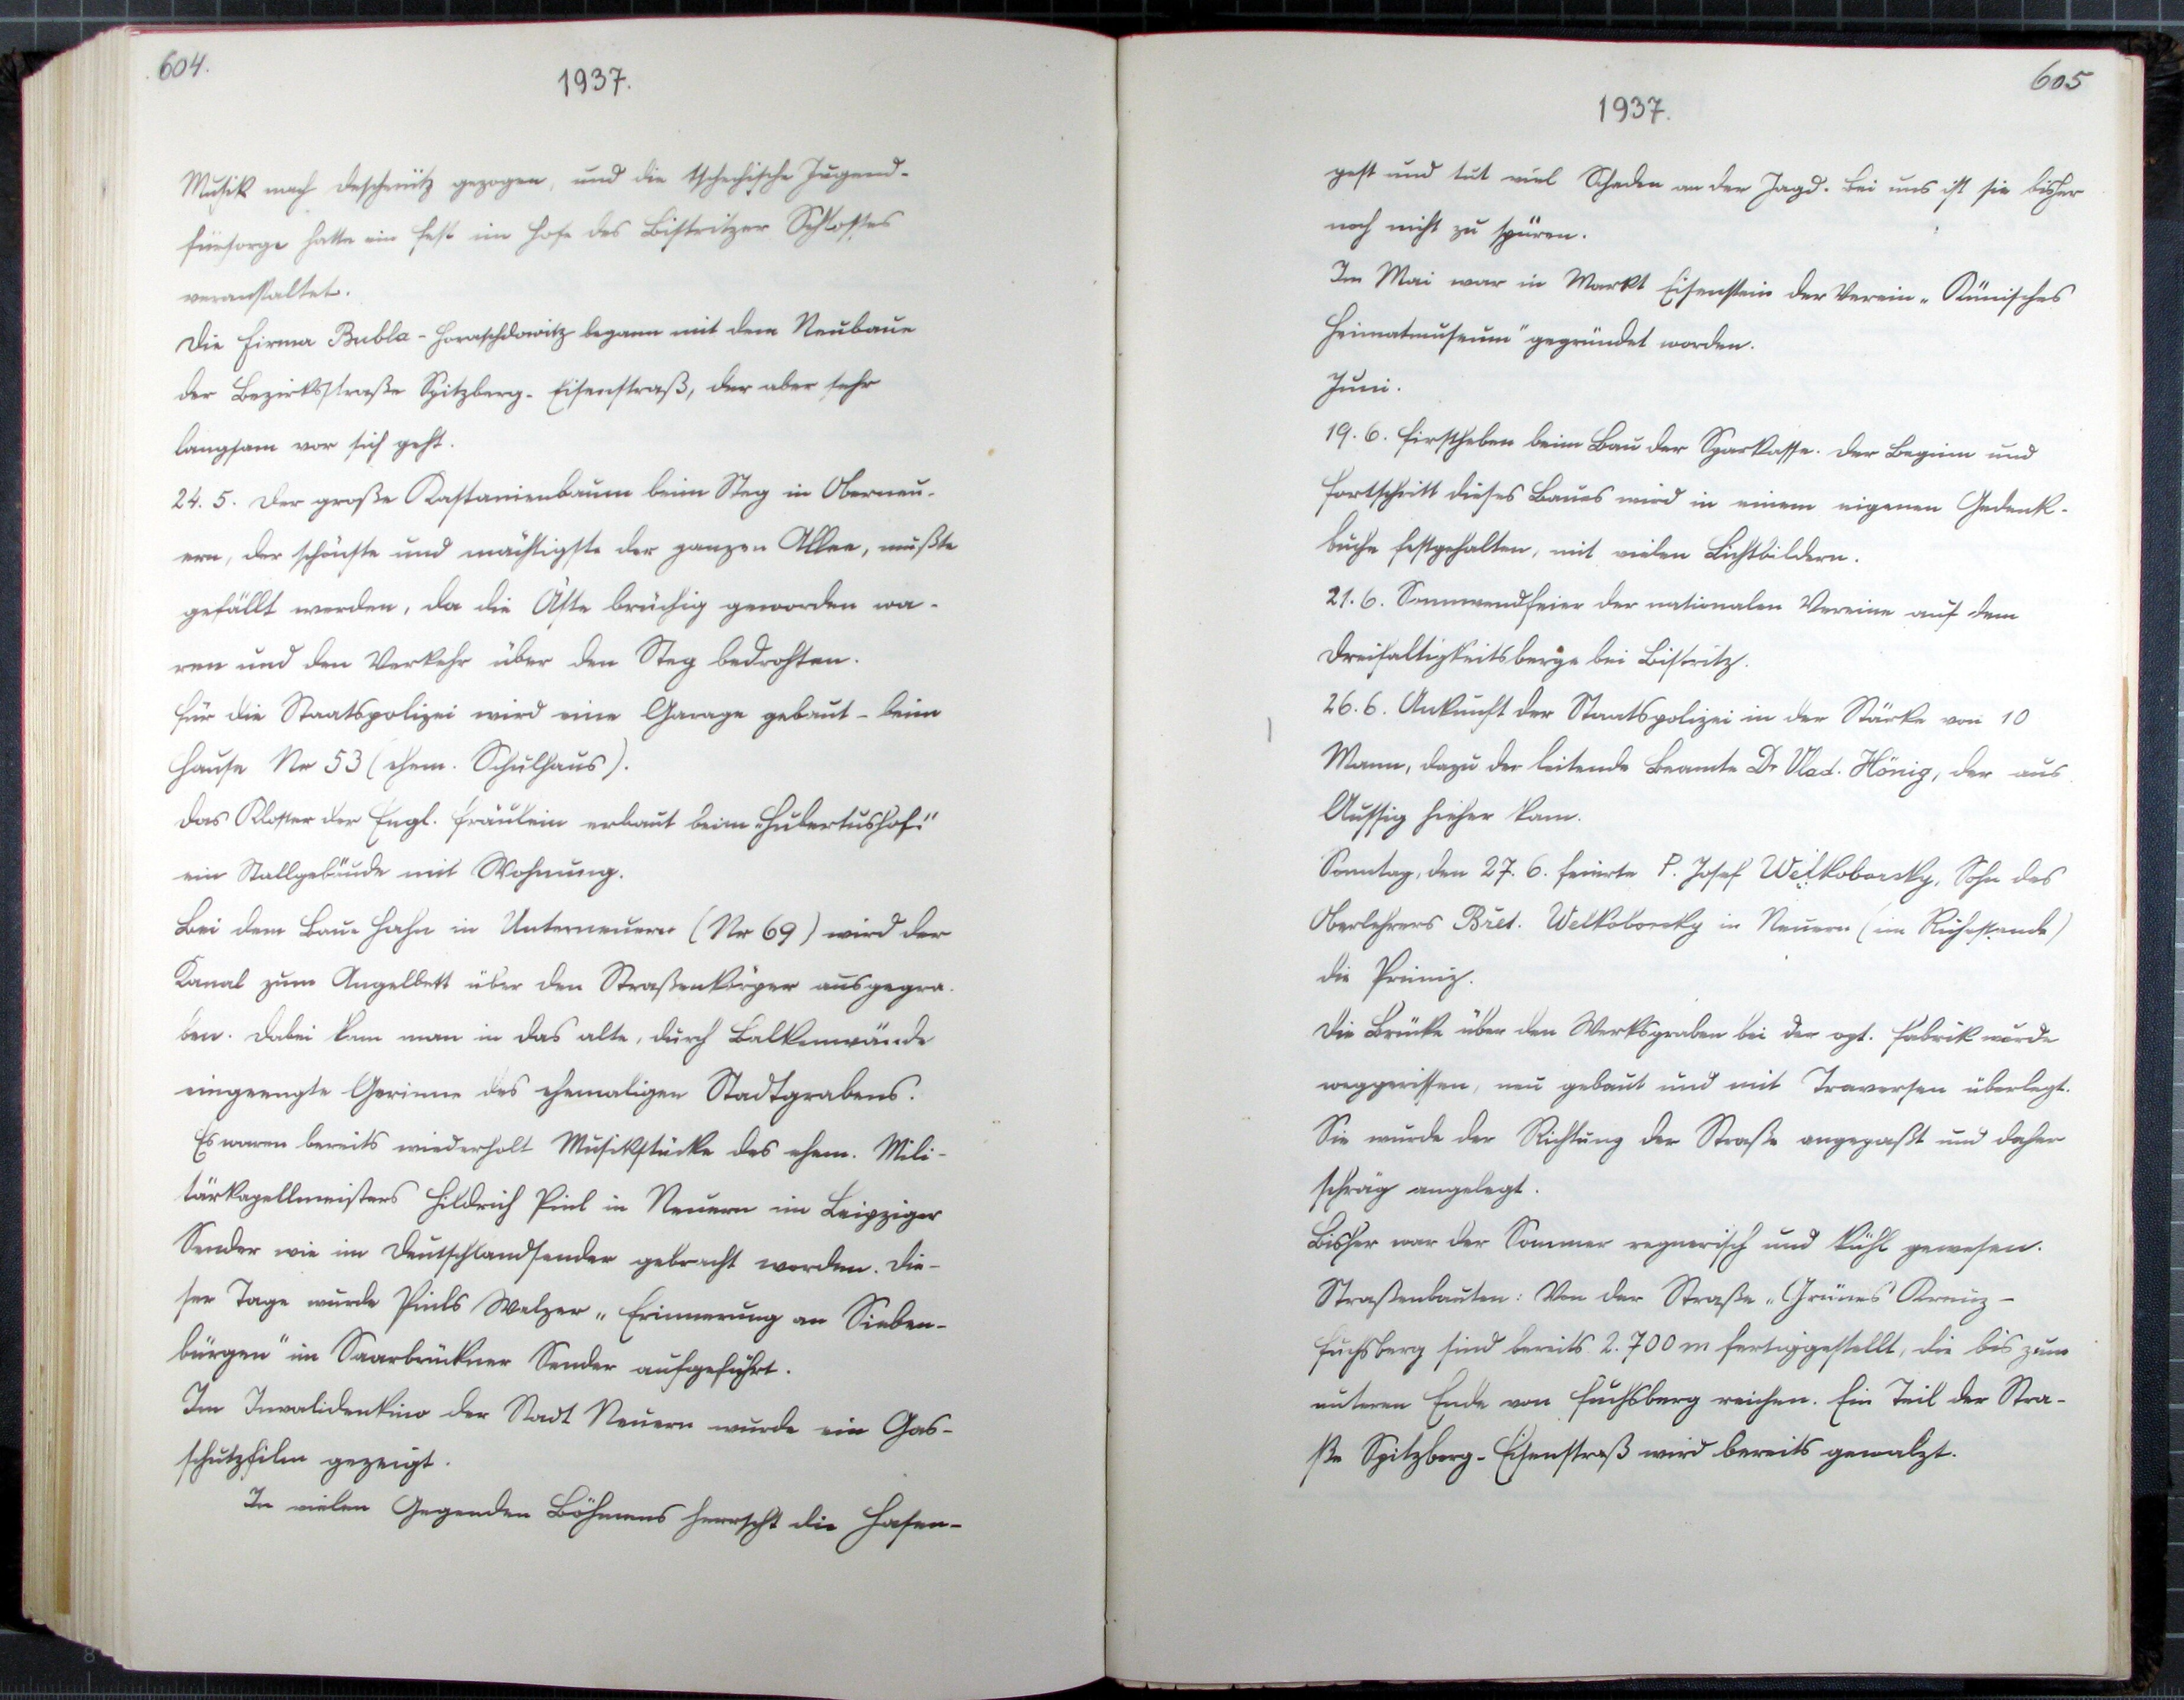 604.
1937.
Musik nach Deschenitz gezogen, und die tschechische Jugend-
fürsorge hatte ein Fest im Hofe des Bistritzer Schlosses
veranstaltet.
Die Firma Bubla-Horaschdowitz begann mit dem Neubaue
der Bezirksstraße Spitzberg-Eisenstraß, der aber sehr
langsam vor sich geht.
24. 5. Der große Kastanienbaum beim Steg in Oberneu-
ern, der schönste und mächtigste der ganzen Allee, mußte
gefällt werden, da die Äste brüchig geworden wa-
ren und den Verkehr über den Steg bedrohten.
Für die Staatspolizei wird eine Garage gebaut - beim
Hause Nr 53 (ehem. Schulhaus).
Das Kloster der Engl. Fräulein erbaut beim „Hubertushof“
ein Stallgebäude mit Wohnung.
Bei dem Baue Hahn in Unterneuern (Nr 69) wird der
Kanal zum Angelbett über den Straßenkörper ausgegra-
ben. Dabei kam man in das alte, durch Balkenwände
eingeengte Gerinne des ehemaligen Stadtgrabens.
Es waren bereits wiederholt Musikstücke des ehem. Mili-
tärkapellmeisters Hildrich Pinl in Neuern im Leipziger
Sender wie im Deutschlandsender gebracht worden. Die-
ser Tage wurde Pinls Walzer „Erinnerung an Sieben-
bürgen“ im Saarbrückner Sender aufgeführt.
Im Invalidenkino der Stadt Neuern wurde ein Gas-
schutzfilm gezeigt.
In vielen Gegenden Böhmens herrscht die Hasen-
605
1937.
pest und tut viel Schaden an der Jagd. Bei uns ist sie bisher
noch nicht zu spüren.
Im Mai war in Markt Eisenstein der Verein „Künisches
Heimatmuseum“ gegründet worden.
Juni.
19. 6. Firstheben beim Bau der Sparkasse. Der Beginn und
Fortschritt dieses Baues wird in einem eigenen Gedenk-
buche festgehalten, mit vielen Lichtbildern.
21. 6. Sonnwendfeier der nationalen Vereine auf dem
Dreifaltigkeitsberge bei Bistritz.
26. 6. Ankunft der Staatspolizei in der Stärke von 10
Mann, dazu der leitende Beamte Dr Vlad. Hönig, der aus
Aussig hieher kam.
Sonntag, den 27. 6. feierte P. Josef Welkoborsky, Sohn des
Oberlehrers Břet. Welkoborsky in Neuern (im Ruhestande)
die Primiz.
Die Brücke über den Werksgraben bei der opt. Fabrik wurde
weggerissen, neu gebaut und mit Traversen überlegt.
Sie wurde der Richtung der Straße angepaßt und daher
schräg angelegt.
Bisher war der Sommer regnerisch und kühl gewesen.
Straßenbauten: Von der Straße „Grünes Kreuz -
Fuchsberg sind bereits 2.700 m fertiggestellt, die bis zum
unteren Ende von Fuchsberg reichen. Ein Teil der Stra-
ße Spitzberg-Eisenstraß wird bereits gewalzt.